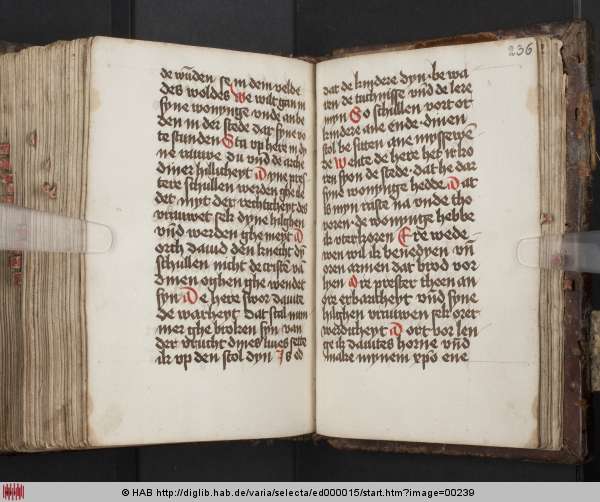 de wūden se in dem velde
des woldes We wilt gan in
syne wonynge unde anbe
den in der stede dar syne vo
te stunden Sta up here in dy
ne rauwe du vnd de arche
diner hillicheyt Dyne pres
tere schullen werden ghe klei
det myt der rechticheyt des
vrauwet sek dyne hilghen
vnd werden ghemeyt
dorch dauid den knecht dyn
schullen nicht de triste va
dinen oghen ghe wendet
syn De here swor dauite
de warheyt dat scal num
mer ghe broken syn van
der vrucht dines lives sette
ik vp den stol dyn Is ed
236
dat de kindere dyn be wa
ren de tuchnisse vnd de lere
myn So schullen vort or
kindere ane ende dinen
stol be sitten ane mysserven
de Wente de here het irko
ren syon de stede dat he dar
syne wonynge hedde Dat
is myn raste na vnde tho
voren de wonynge hebbe
ik vterkoren Ere wede
wen wil ik benedyen vn
oren armen dat brod vor
lyen Ore prester thoen an
ore erbaricheyt vnd syne
hilghen vrauwen sek orer
werdicheyt Dort vor len
ge ik dauites horne vnd
make mynem xpo ene
© HAB http://diglib.hab.de/varia/selecta/ed000015/start.htm?image=00239